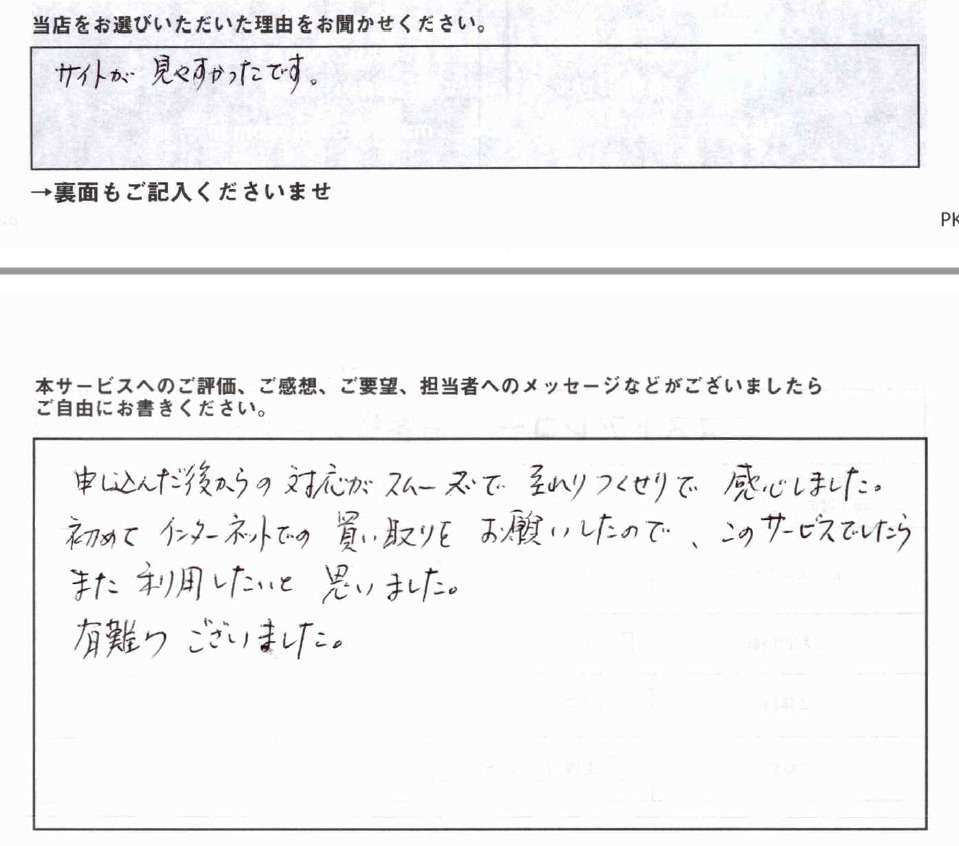 当店をお選びいただいた理由をお聞かせください。
サイトが見やすかったです。
→裏面もご記入くださいませ
PK
本サービスへのご評価、ご感想、ご要望、担当者へのメッセージなどがございましたら
ご自由にお書きください。
申し込んだ後からの対応がスムーズで至れりつくせりで感心しました。
初めてインターネットでの買い取りをお願いしたので、このサービスでしたら
また利用したいと思いました。
有難うございました。